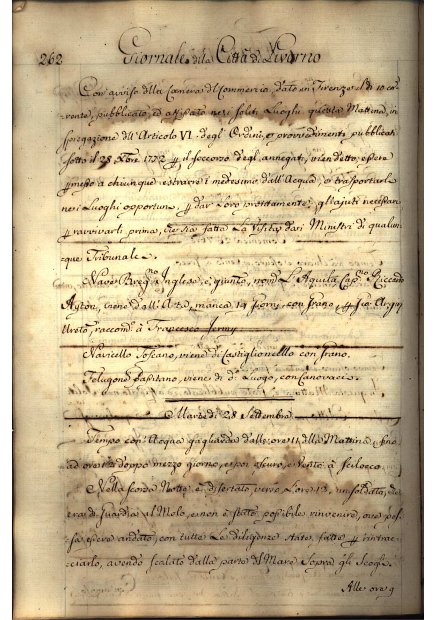 262 Giornale della Città di Livorno
Con avviso della Camera del Commercio, dato in Firenze il dì 10 cor
rente, pubblicato, ed affissato nei soliti Luoghi questa Mattina, in
spiegazione dell'Articolo VI degl'Ordini, e provvedimenti pubblicati
sotto il 28 1772 p il soccorso degl'annegati, vien detto, essere
pmesso a chiunque estrarre i medesimi dall'Acqua, e trasportarle
nei Luoghi opportuni, p dar Loro prontamente gl'ajuti necessari
p ravvivarli prima, che sia fatta La Visita dai Ministri di qualun
que Tribunale.
Nave Inglese, è giunto, nom L'Aquila Cap.no Riccardo
viene dall' manca 14 Giorni, con Grano, p
raccom. à Francesco Jermy
Navicello Toscano, viene di Castiglioncello con Grano.
Felugone viene di d.o Luogo, con Canovacci.
Martedì 28 Settembre
Tempo con Acqua gagliarda dalle ore 11 della Mattina, fino
ad ore doppo mezzo giorno, e poi oscuro, e Vento à Scilocco.
Nella scorsa Notte è disertato verso L'ore 13, un soldato, che
era di Guardia al Molo, e non è stato possibile rinvenire, ove pos
sa essere andato, con tutte Le diligenze state fatte p rintrac
ciarlo, avendo scalato dalla parte del Mare Sopra gli Scogli.
Alle ore 9